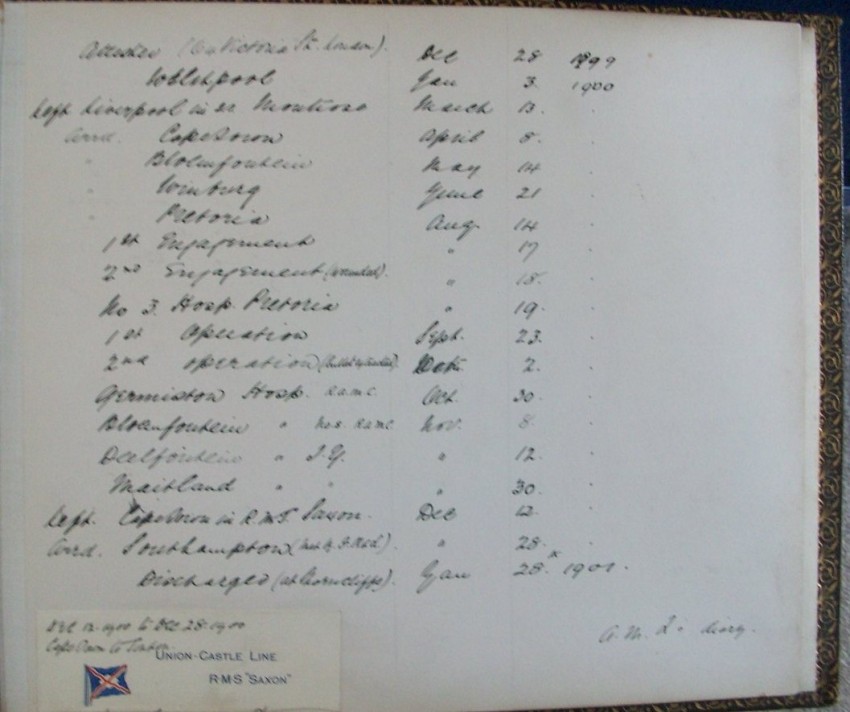 Attested (6 Victoria St. London). Dec 28 1899
Welshpool Jan 3. 1900
Left Liverpool in ss Montrose March 13.
Arrd. Cape Town April 8.
" Bloemfontein May 14
" Winburg June 21
" Pretoria Aug. 14
1st Engagement " 17
2nd Engagement (wounded). " 18.
No 3. Hosp. Pretoria " 19.
1st Operation Sept. 23.
2nd operation (bullet extracted). Oct. 2.
Germiston Hosp. R.A.M.C. Oct. 30.
Bloemfontein " No 8. R.A.M.C. Nov. 8.
Deelfontein " I.Y. " 12.
Maitland " " " 30.
Left. Cape Town in R.M.S. Saxon. Dec 12.
Arrd. Southampton " 28.
Discharged (at Shorncliffe). Jan 28. 1901.
A.M. diary.
Dec 12. 1900 to Dec 28. 1900
Cape Town to
UNION-CASTLE LINE
R.M.S "SAXON"